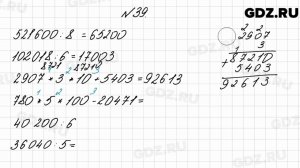 GDZ.RU
№39
521600 : 8 = 65200
102018 : 6 = 17003
8721 87210
2907 * 3 * 10 + 5403 = 92613
780 * 5 * 100 - 20471 =
40 200 : 6
36040 : 5 =
2 2
2907
3
1
87210
+ 5403
92613
GDZ.RU